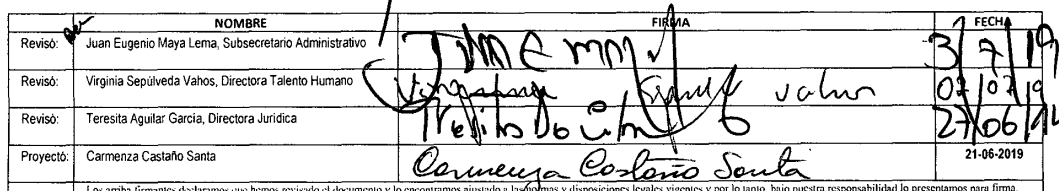 NOMBRE FIRMA FECHA
Revisó: Juan Eugenio Maya Lema, Subsecretario Administrativo 3/7/19
Revisó: Virginia Sepúlveda Vahos, Directora Talento Humano 07/07/19
Revisó: Teresita Aguilar García, Directora Jurídica 27/06/
Proyectó: Carmenza Castaño Santa Carmenza Castaño Santa 21-06-2019
Los arriba firmantes declaramos que hemos revisado el documento y lo encontramos ajustado a las normas y disposiciones legales vigentes y por lo tanto, bajo nuestra responsabilidad lo presentamos para firma.